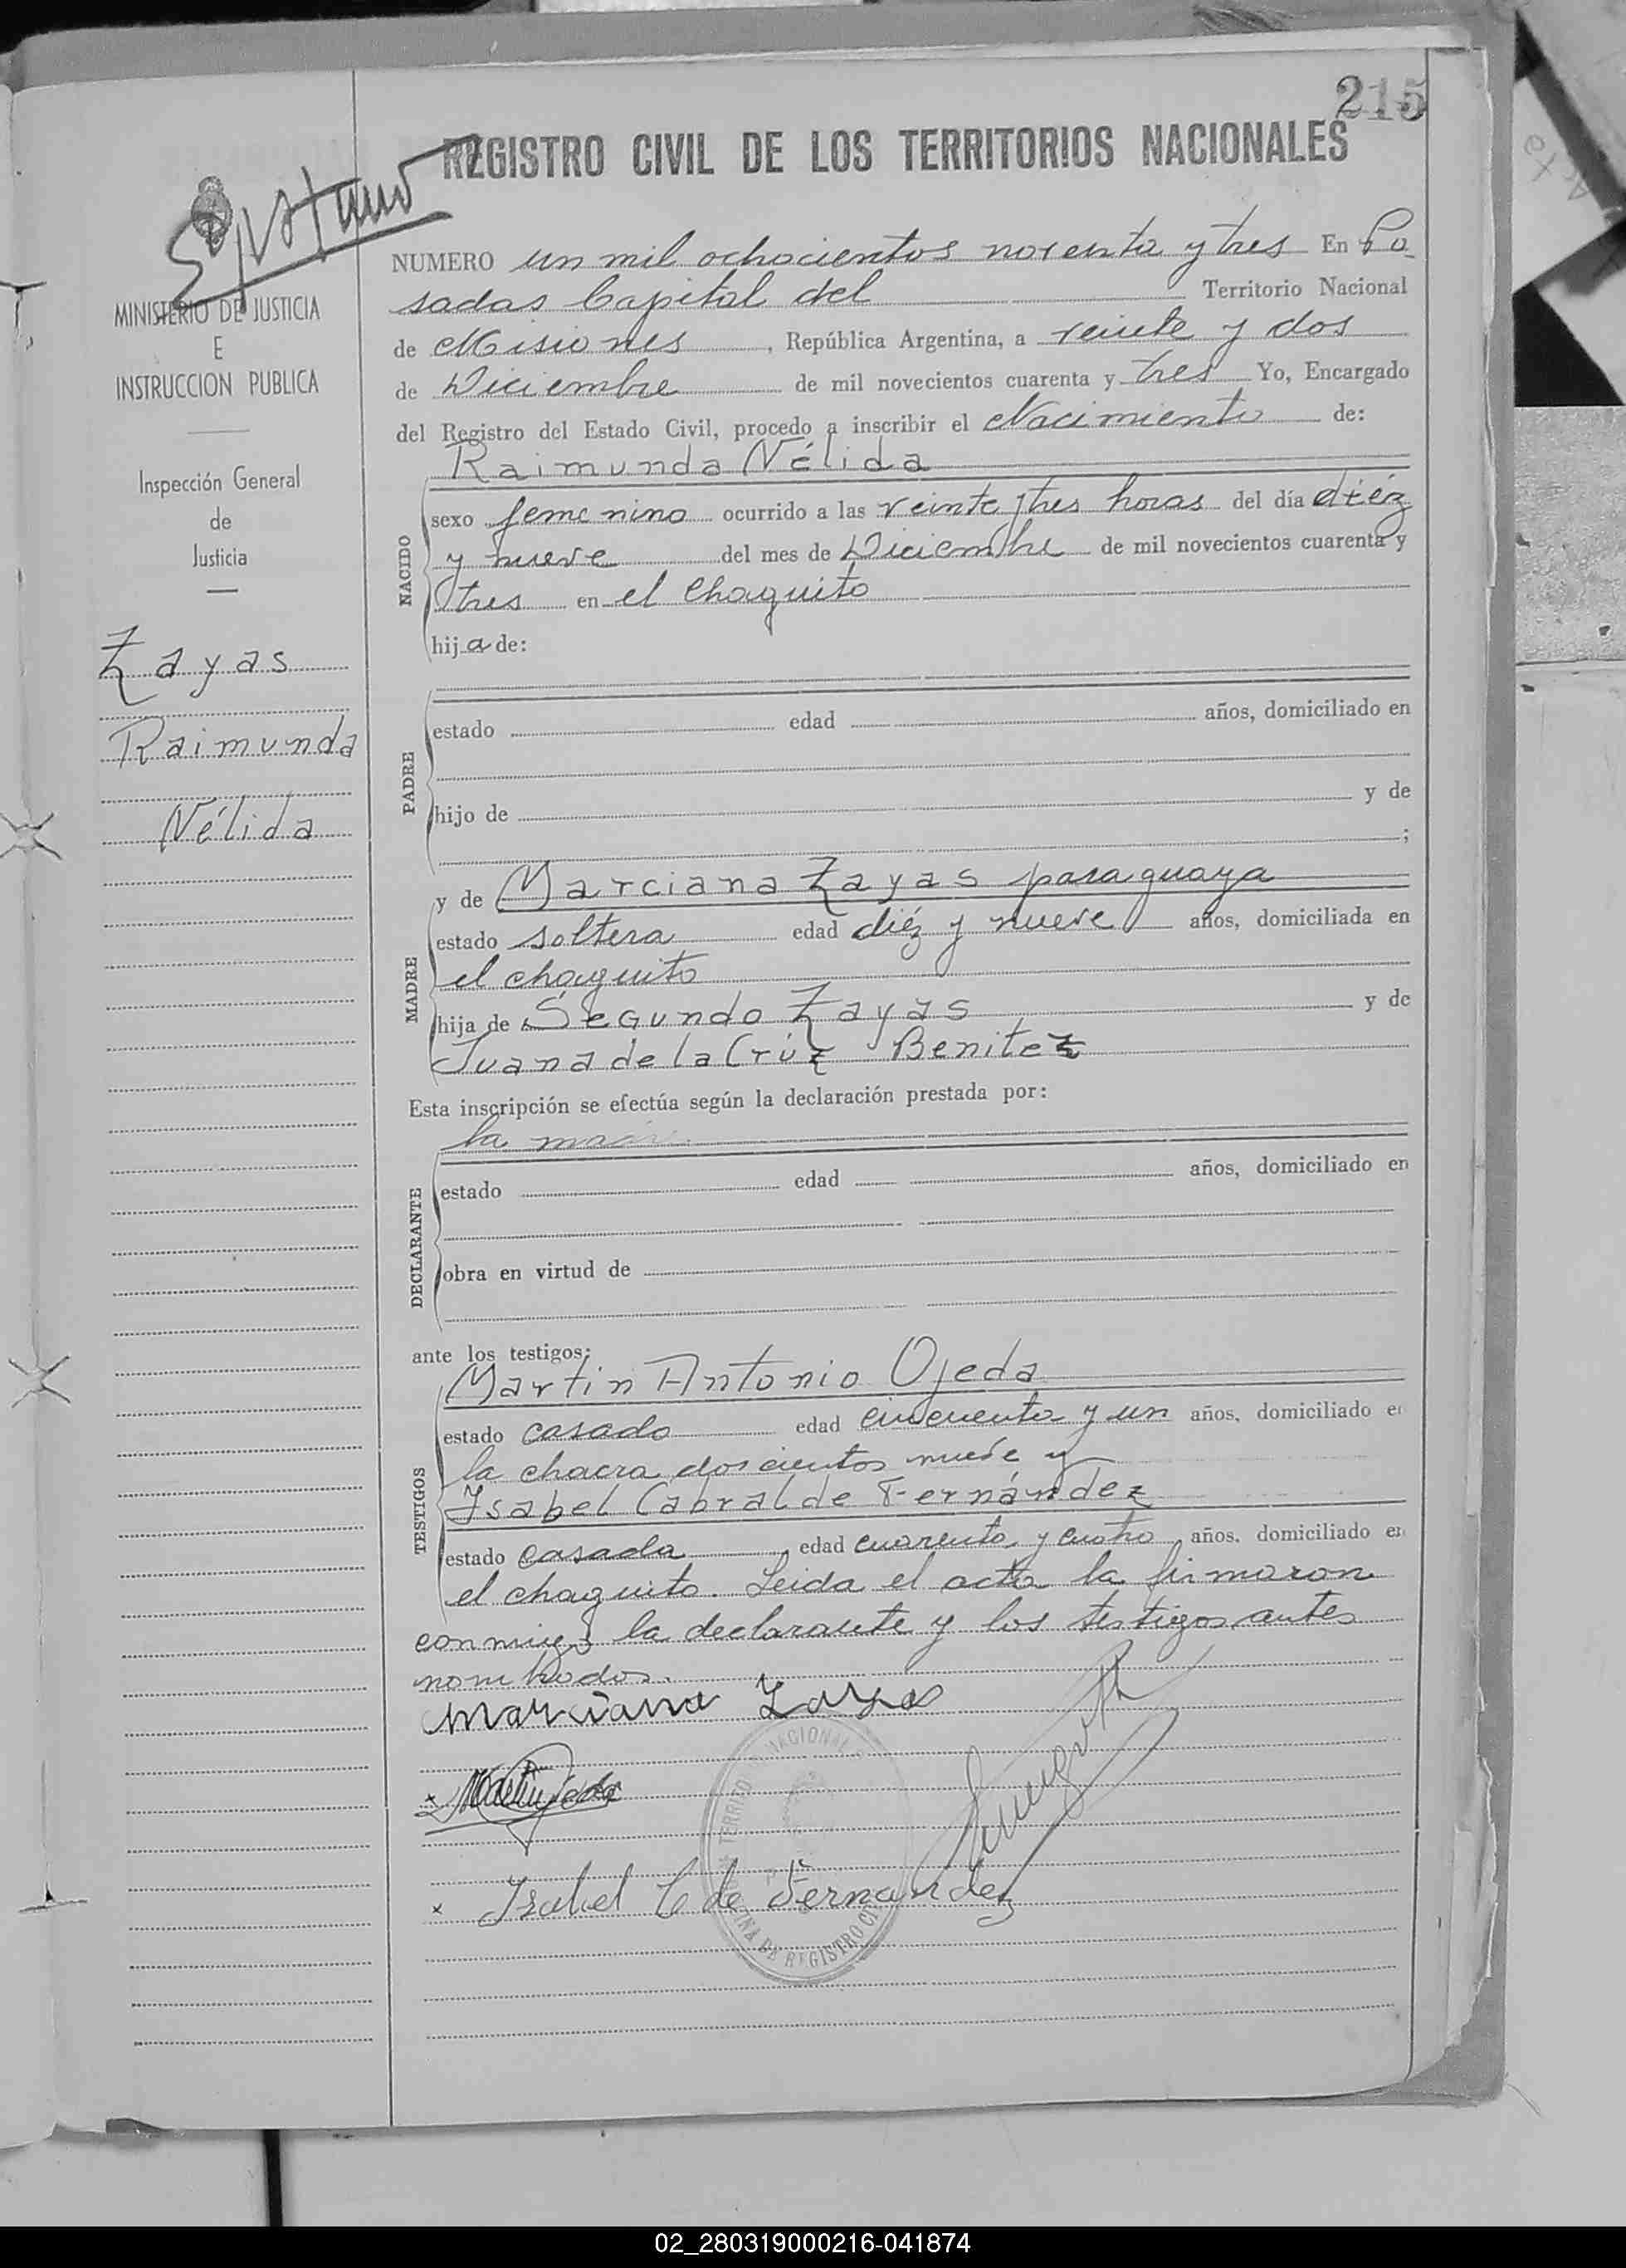 215
REGISTRO CIVIL DE LOS TERRITORIOS NACIONALES
MINISTERIO DE JUSTICIA
E
INSTRUCCION PUBLICA
Inspección General
de
Justicia
Zayas
Raimunda
Nélida
NUMERO un mil ochocientos noventa y tres En Po-
sadas Capital del Territorio Nacional
de Misiones, República Argentina, a veinte y dos
de Diciembre de mil novecientos cuarenta y tres Yo, Encargado
del Registro del Estado Civil, procedo a inscribir el Nacimiento de:
Raimunda Nélida
NACIDO
sexo femenino ocurrido a las veinte y tres horas del día diéz
y nueve del mes de Diciembre de mil novecientos cuarenta y
tres en el Chaquito
hija de:
PADRE
estado edad años, domiciliado en
hijo de y de
;
y de Marciana Zayas paraguaya
MADRE
estado soltera edad diéz y nueve años, domiciliada en
el chaquito
hija de Segundo Zayas y de
Juana de la Crúz Benitez
Esta inscripción se efectúa según la declaración prestada por:
la madre
DECLARANTE
estado edad años, domiciliado en
obra en virtud de
ante los testigos:
Martin Antonio Ojeda
TESTIGOS
estado casado edad cincuenta y un años, domiciliado e
la chacra doscientos nueve y
Isabel Cabral de Fernández
estado casada edad cuarenta y cuatro años, domiciliado en
el chaquito. Leida el acta la firmaron
conmigo la declarante y los testigos antes
nombrados.
Marciana Zayas
x Martin Ojeda
x Isabel C de Fernandez
TERRITO NACIONAL
OFICINA DE REGISTRO CI
02_280319000216-041874